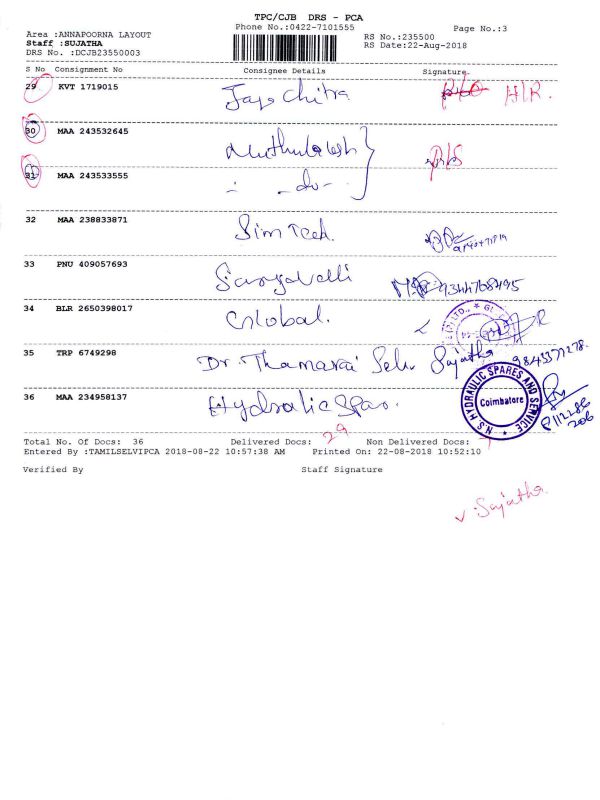 TPC/CJB DRS - PCA
Phone No.:0422-7101555
Page No.:3
Area :ANNAPOORNA LAYOUT
Staff :SUJATHA
DRS No. :DCJB23550003
RS No.:235500
RS Date:22-Aug-2018
S No Consignment No Consignee Details Signature
29 KVT 1719015 Jaya Chitra
30 MAA 243532645
31 MAA 243533555 - do -
32 MAA 238833871 Sim Tech.
33 PNU 409057693 9344768495
34 BLR 2650398017 Global.
35 TRP 6749298 Dr. Thamarai Selvi Sujatha
36 MAA 234958137 Hydralic Spar.
N.S. HYDRAULIC SPARES AND SERVICE
Coimbatore
Total No. Of Docs: 36 Delivered Docs: 29 Non Delivered Docs:
Entered By :TAMILSELVIPCA 2018-08-22 10:57:38 AM Printed On: 22-08-2018 10:52:10
Verified By Staff Signature
Sujatha